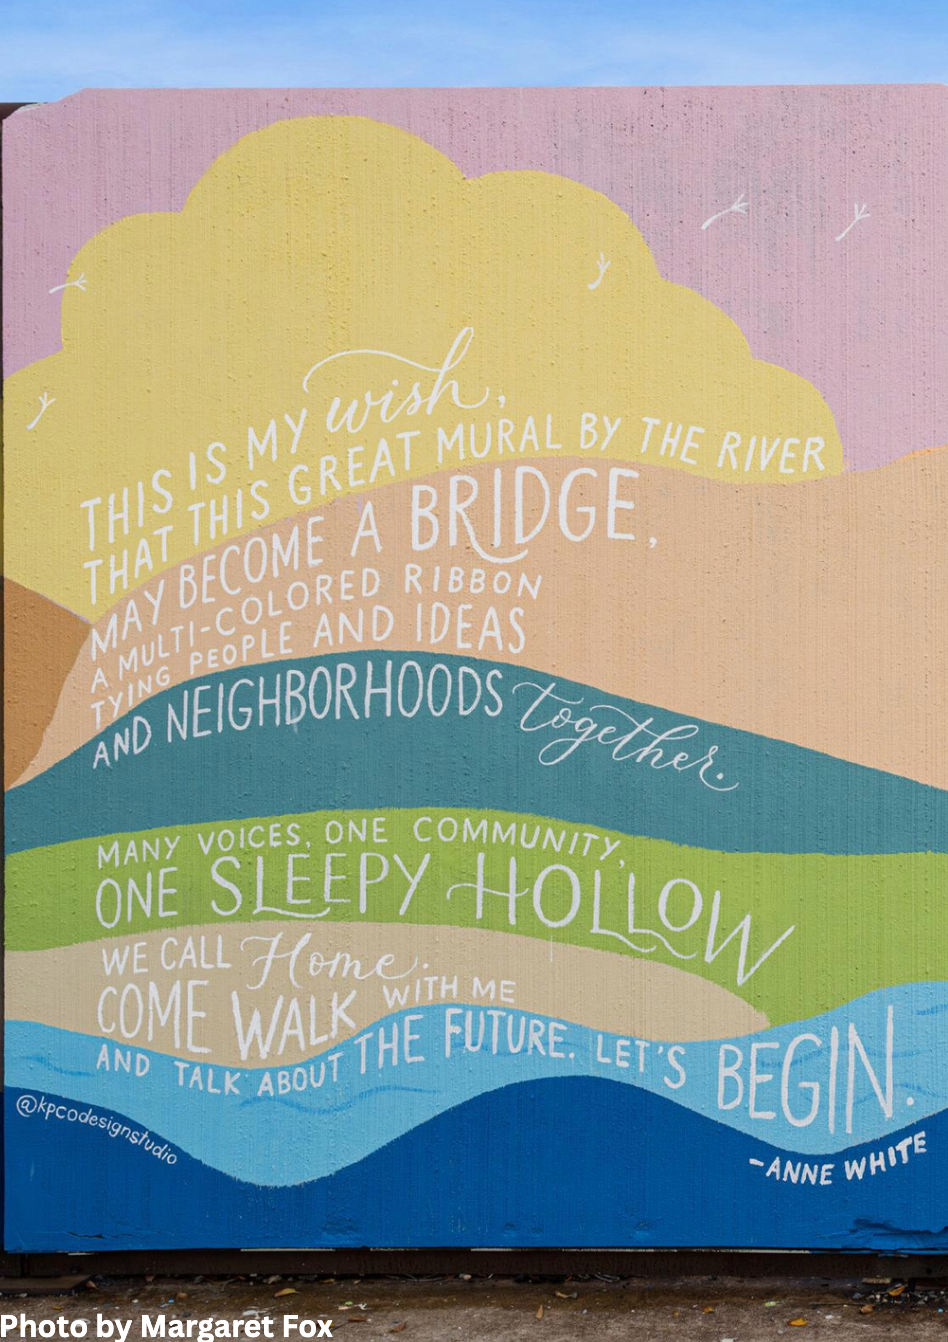 THIS IS MY wish,
THAT THIS GREAT MURAL BY THE RIVER
MAY BECOME A BRIDGE,
A MULTI-COLORED RIBBON
TYING PEOPLE AND IDEAS
AND NEIGHBORHOODS together.
MANY VOICES, ONE COMMUNITY,
ONE SLEEPY HOLLOW
WE CALL Home.
COME WALK WITH ME
AND TALK ABOUT THE FUTURE. LET'S BEGIN.
@kpcodesignstudio
-ANNE WHITE
Photo by Margaret Fox